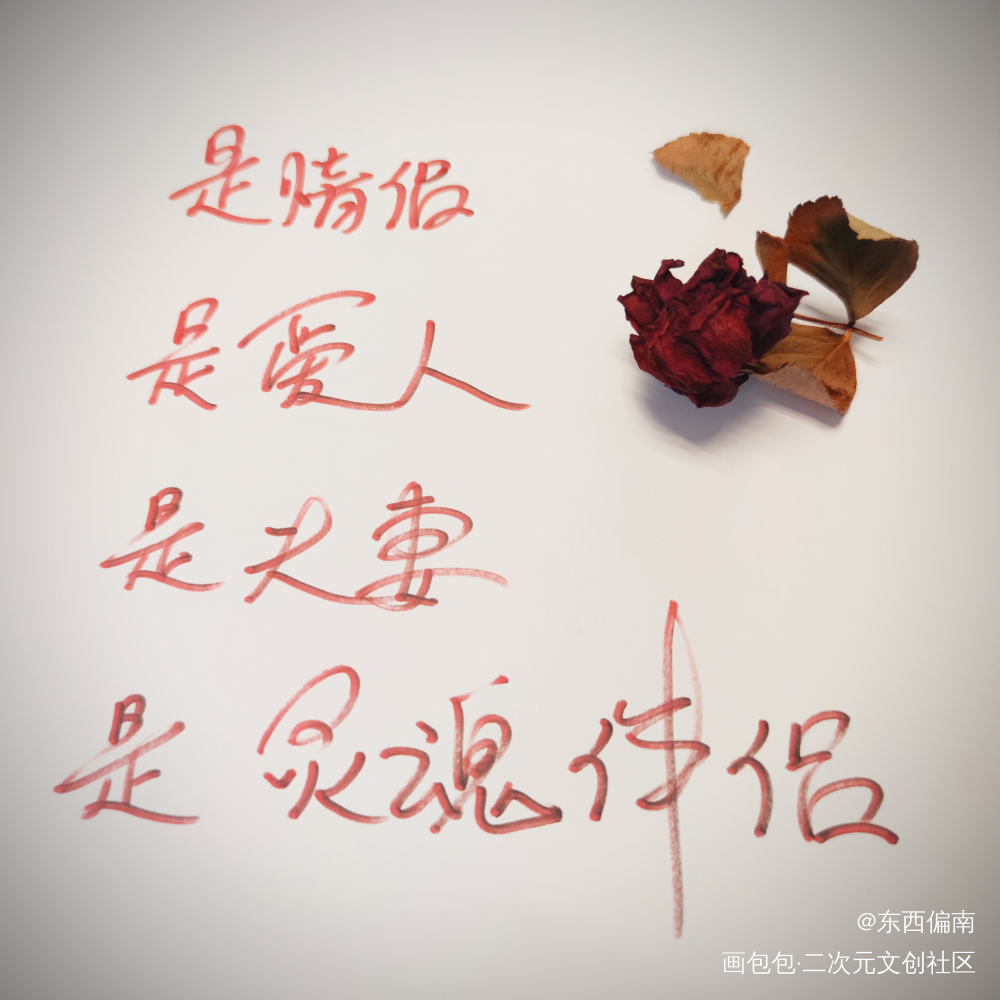 是假
是爱人
是夫妻
是灵魂伴侣
@东西偏南
画包包·二次元文创社区